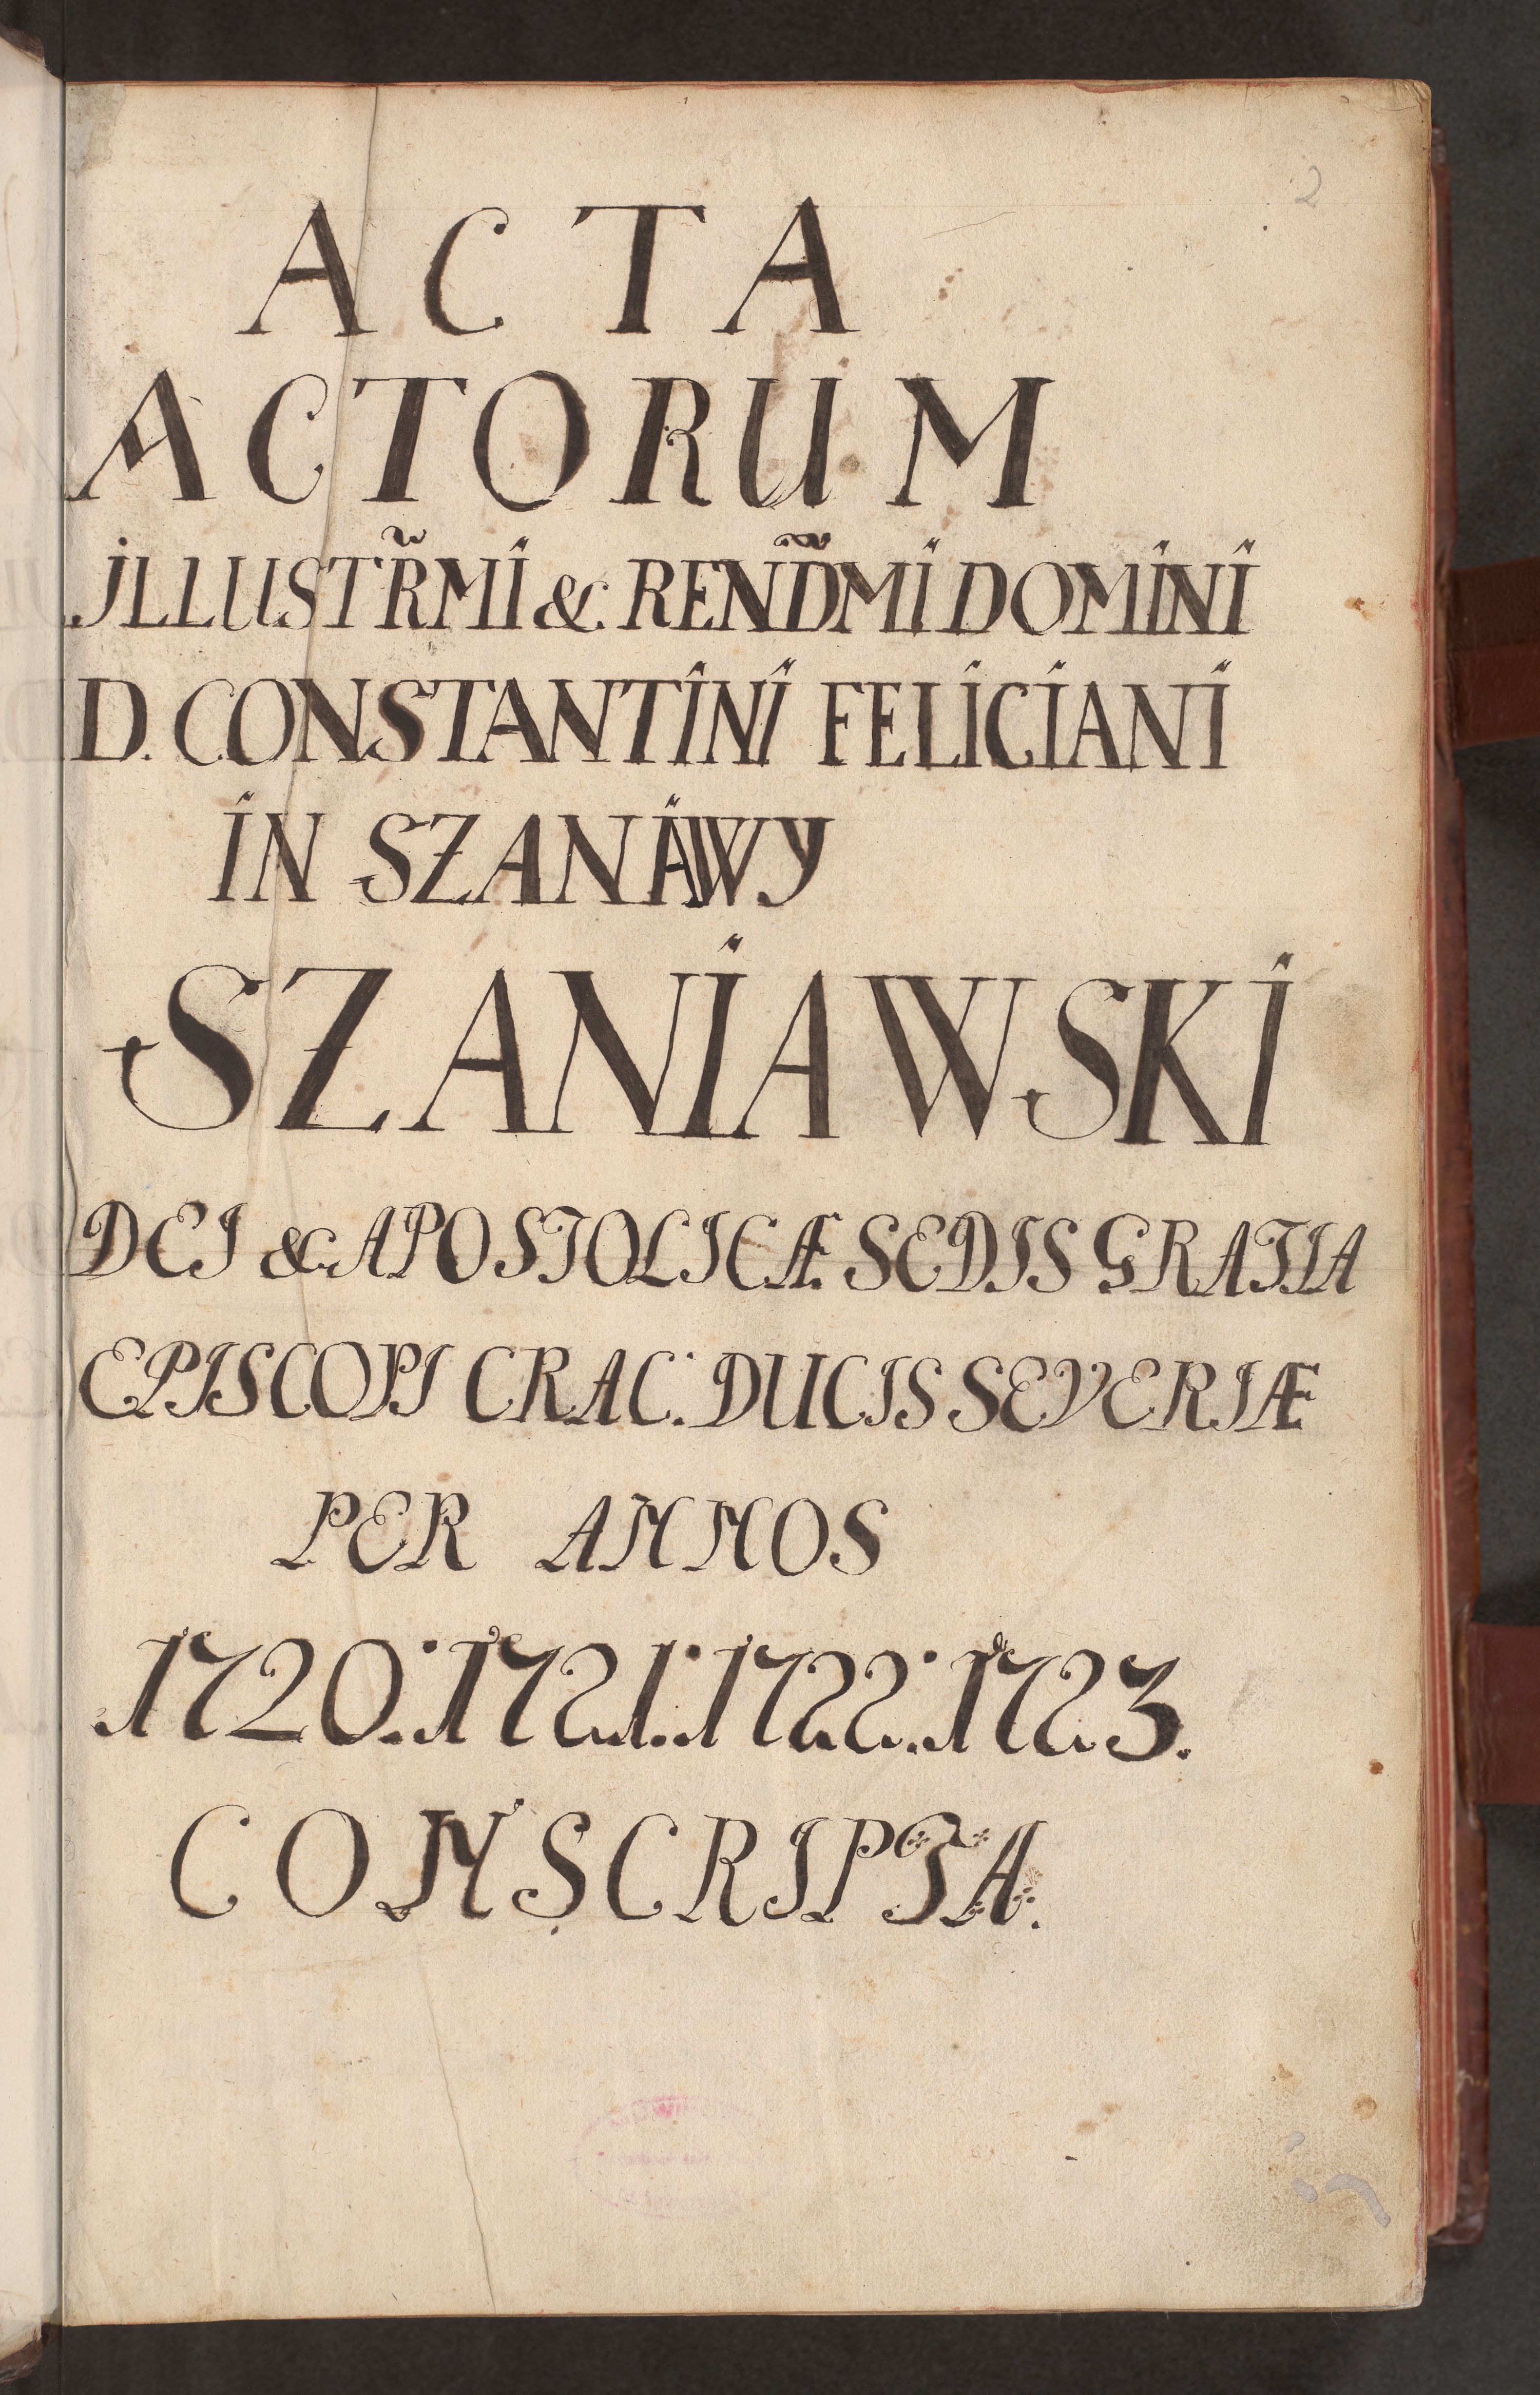 2
ACTA
ACTORUM
JLLUSTR̃MI &. REND̃MI DOMINI
D. CONSTANTINI FELICIANI
IN SZANAWY
SZANIAWSKI
DEI & APOSTOLICÆ SEDIS GRATIA
EPISCOPI CRAC: DUCIS SEVERIÆ
PER ANNOS
1720: 1721: 1722: 1723.
CONSCRIPTA.